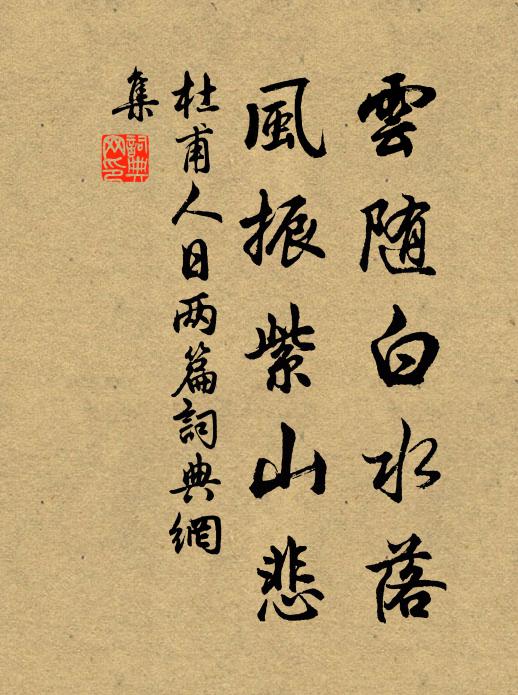 雲随白水落
風振紫山悲
杜甫人日两篇詞典網
集
詞典網印